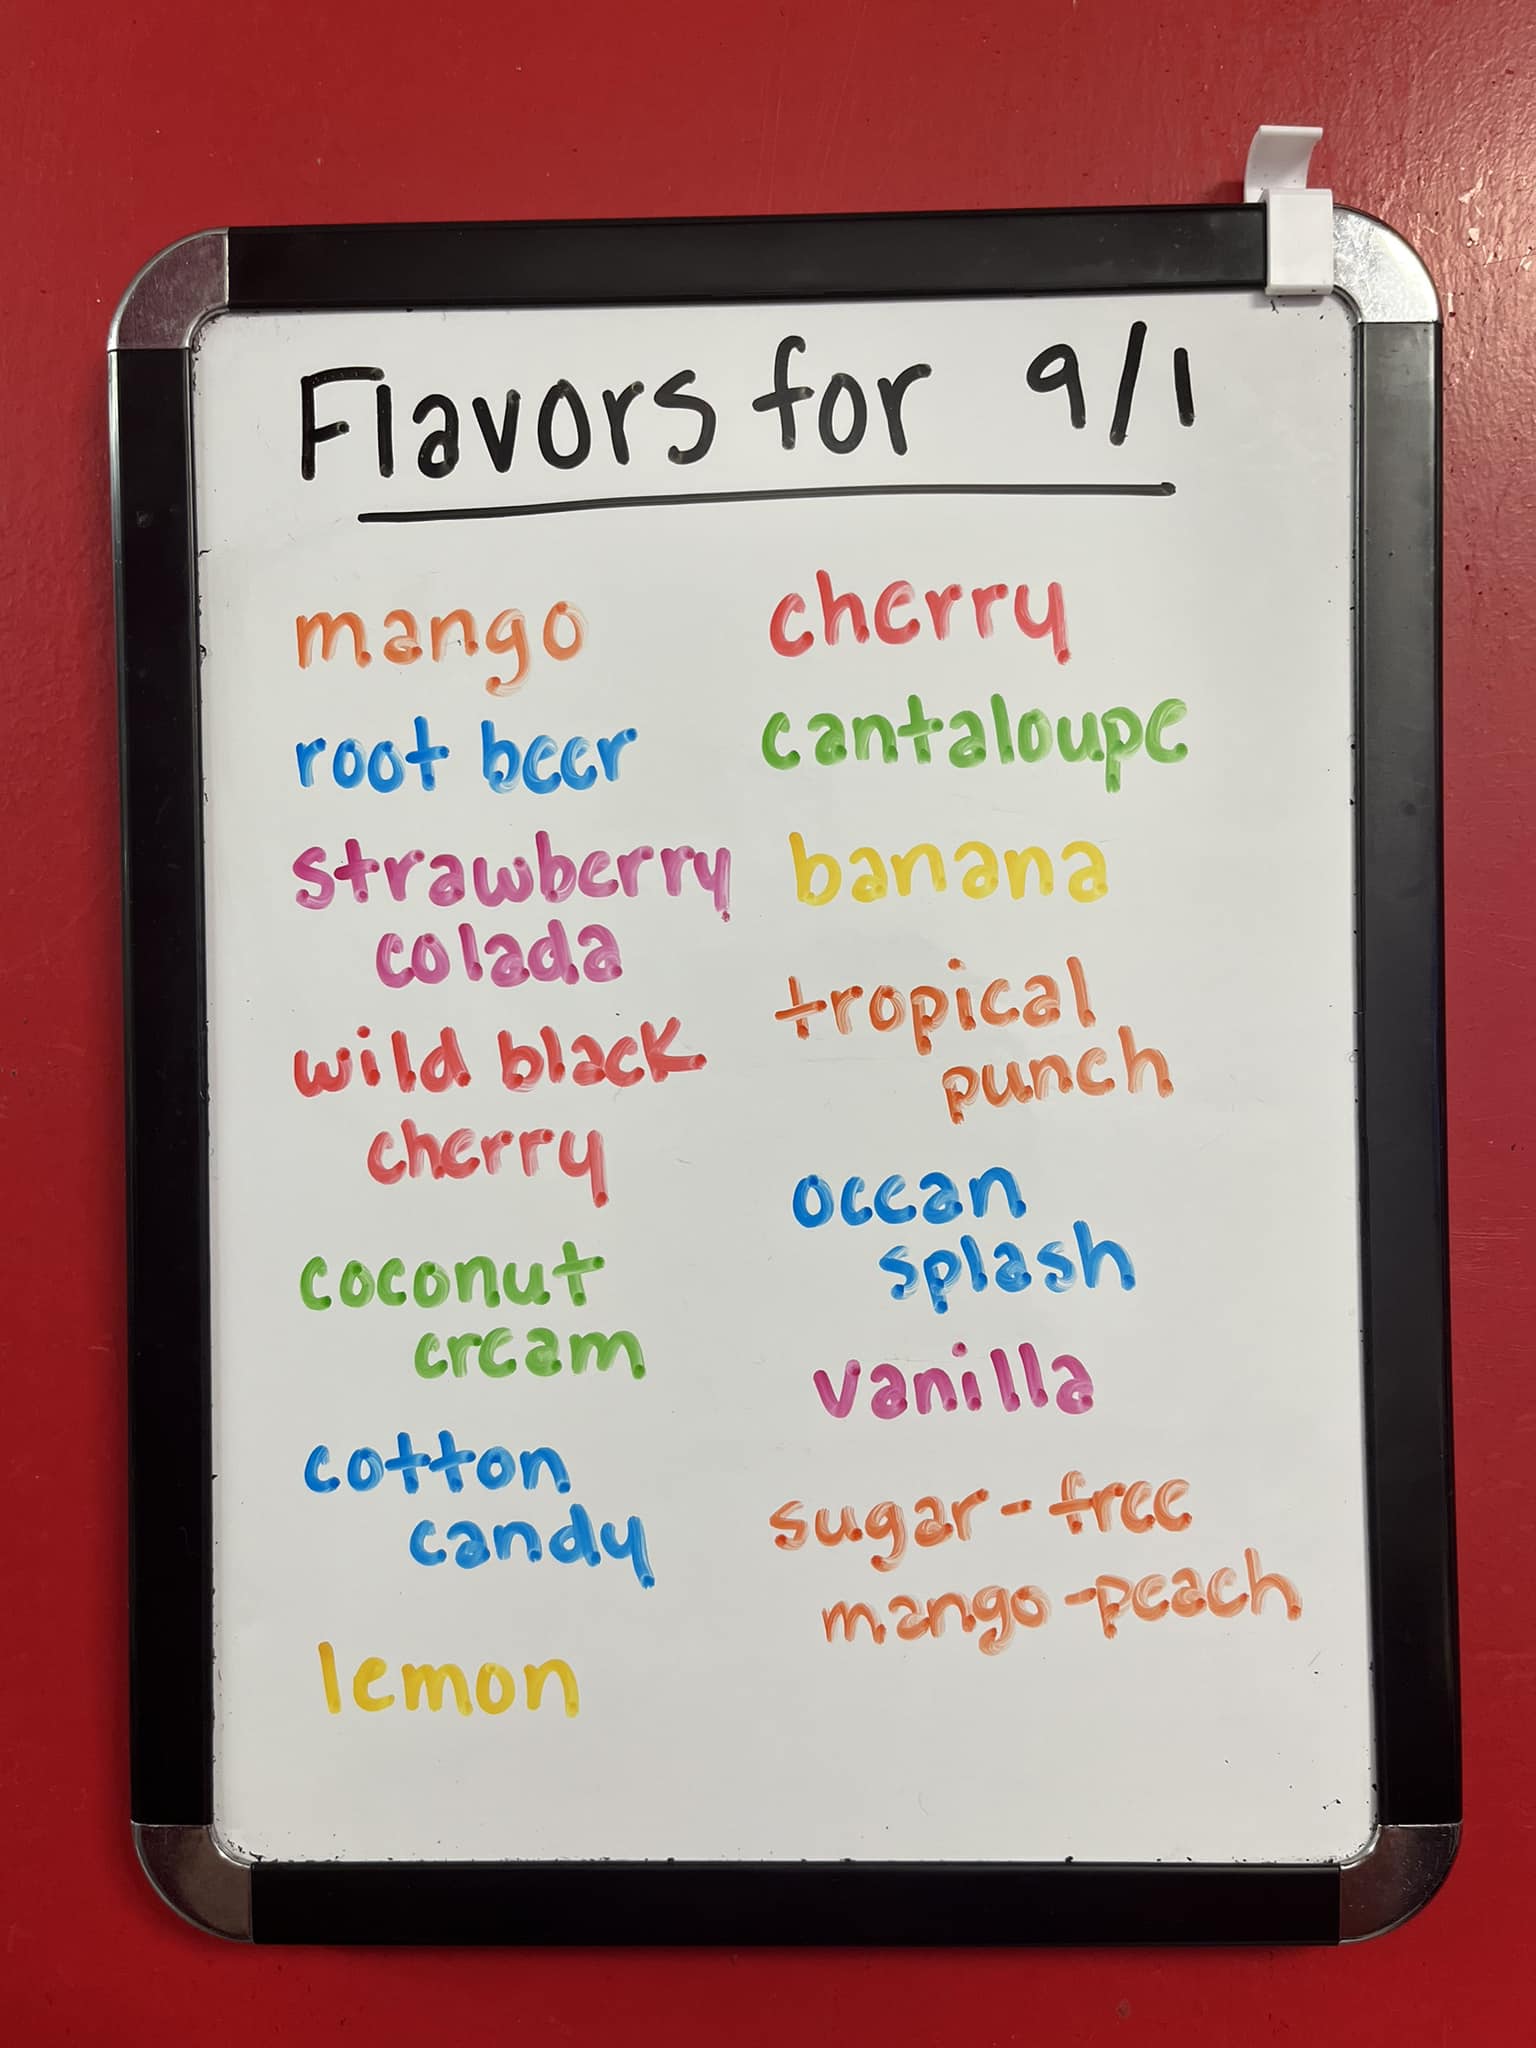 Flavors for 9/1
mango
root beer
strawberry
colada
wild black
cherry
coconut
cream
cotton
candy
lemon
cherry
cantaloupe
banana
tropical
punch
ocean
splash
vanilla
sugar-free
mango-peach